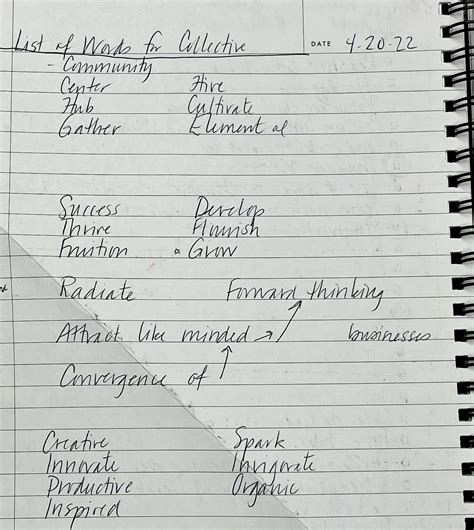 List of Words for Collective DATE 4-20-22
- Community
Center Hive
Hub Cultivate
Gather Elemental
Success Develop
Thrive Flourish
Fruition Grow
Radiate Forward thinking
Attract like minded businesses
Convergence of
Creative Spark
Innovate Invigorate
Productive Organic
Inspired